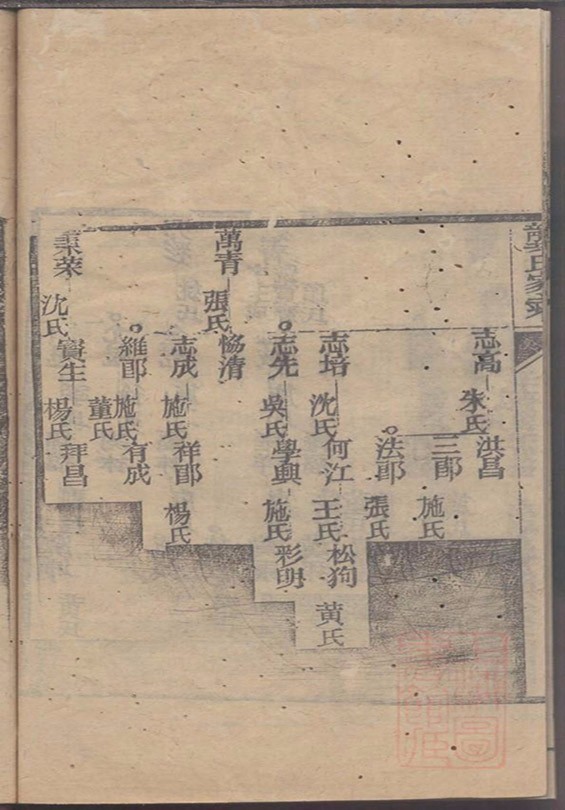 志高
朱氏
洪昌
三郎
施氏
法郎
張氏
志培
沈氏
何江
王氏
松狗
黄氏
志先
吳氏
學興
施氏
彩明
萬青
張氏
恊清
志成
施氏
祥郎
楊氏
維郎
施氏
董氏
有成
沈氏
寳生
楊氏
拜昌